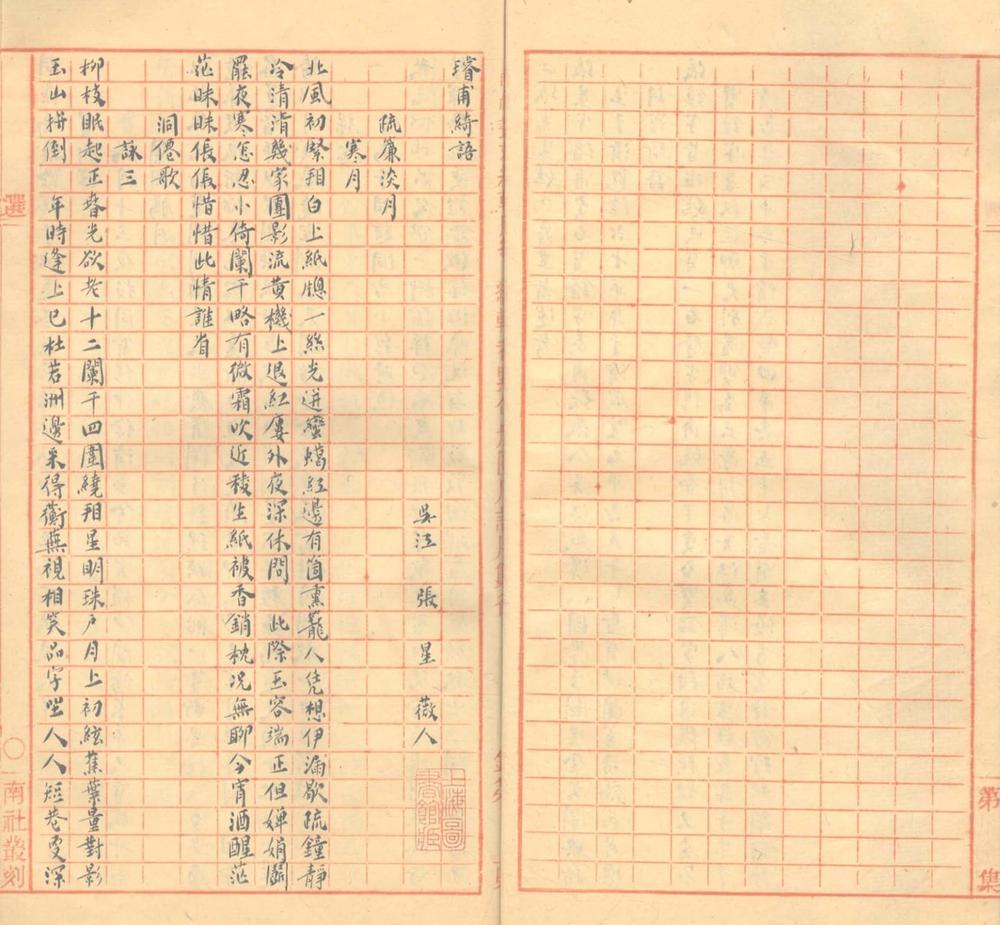 第 集
璿甫綺語
吳江 張星薇人
疏簾淡月
寒月
北風初緊翔白上紙牕一絲光迸蠻蠟紅邊有箇熏籠人凭想伊漏歇疏鐘靜
冷清清幾家團影流黃機上退紅屢外夜深休問 此際玉容端正但嬋娟鬬
罷夜寒怎忍小倚闌干略有微霜吹近稜生紙被香銷枕況無聊今宵酒醒茫
茫昧昧倀倀惜惜此情誰省
洞僊歌
詠三
柳枝眠起正春光欲老十二闌干四圍繞翔星明珠戶月上初絃蕉葉量對影
玉山拚倒 年時逢上巳杜若洲邊采得蘅蕪視相笑品字坐人人短巷更深
選
南社叢刻
上海圖書館藏